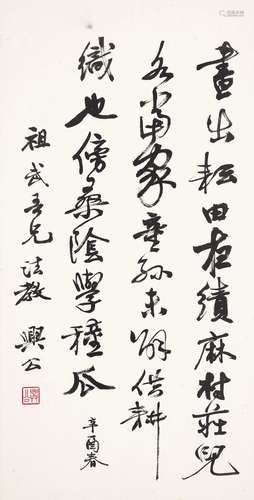 晝出耘田夜績麻村莊兒
女各當家童孫未解供耕
織也傍桑陰學種瓜 辛酉春
祖武吾兄法教 興公